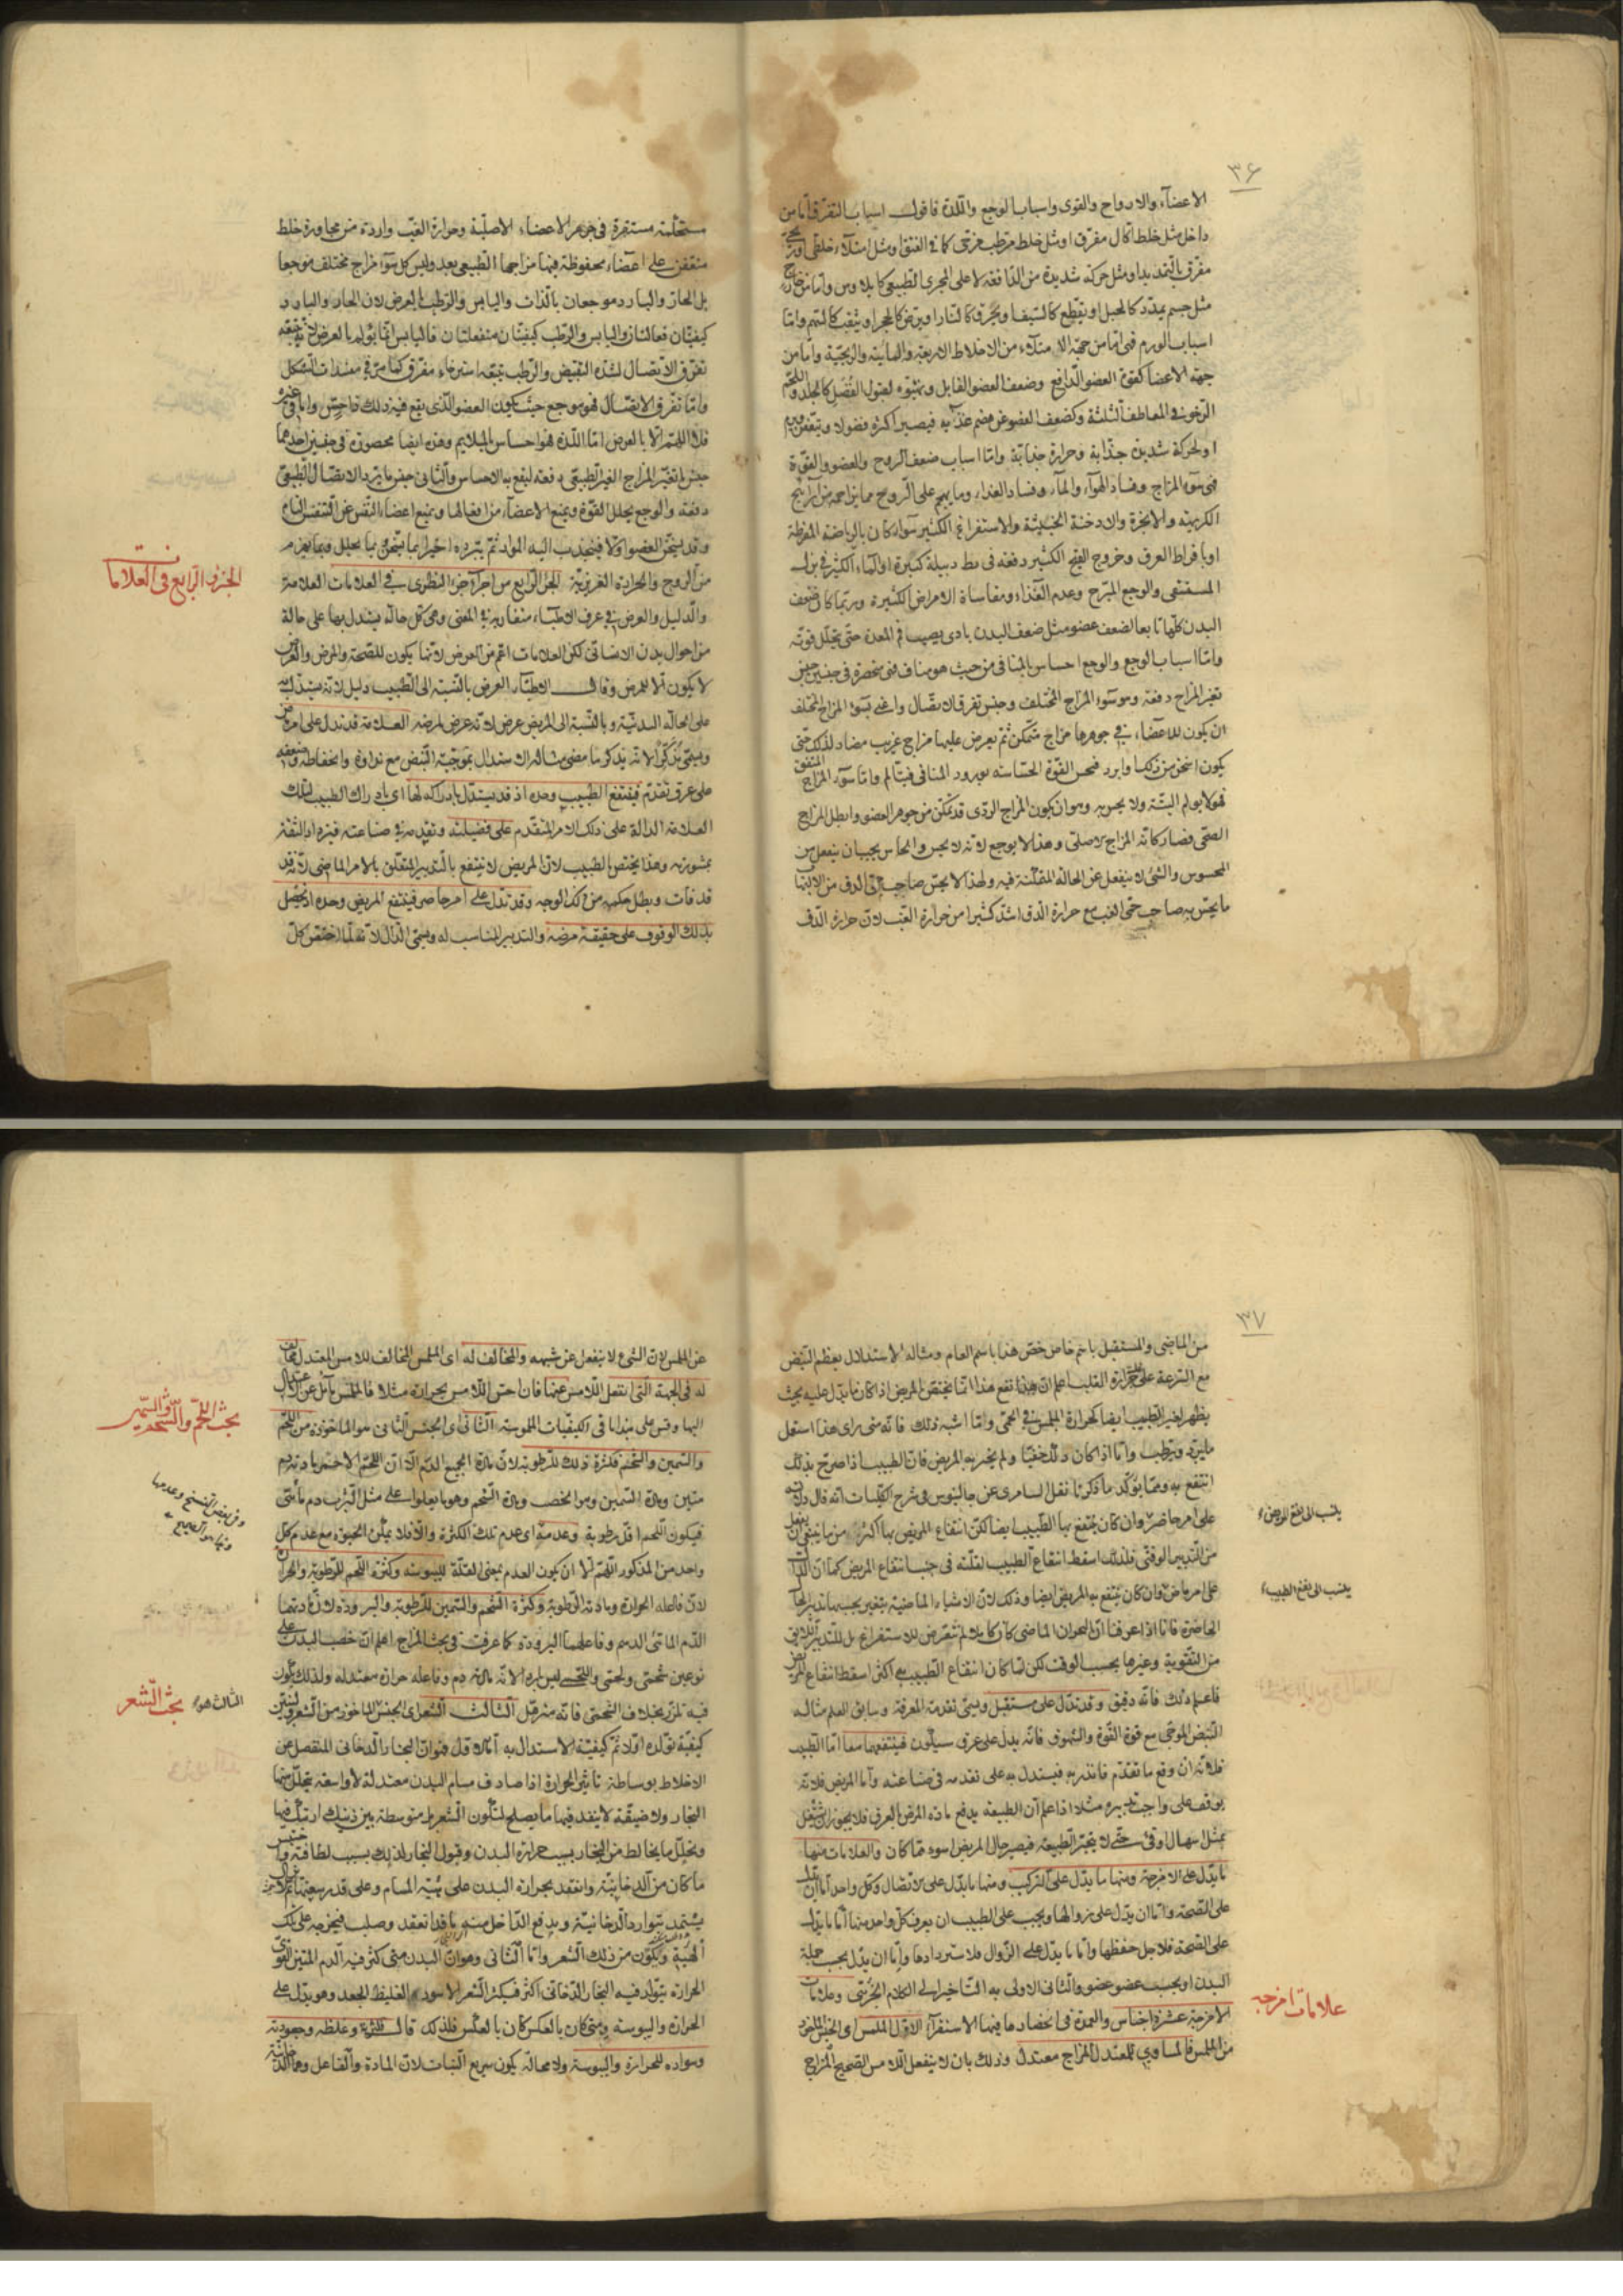 ٣٦
الاعضآء والارواح والقوى واسباب الوجع واللذة فاقول اسباب التفرق اما من
داخل مثل خلط اكال مفرق او مثل خلط مرطب مرخى كما فى الفتق او مثل امتلاء خلطى او
مفرق بالتمديد او مثل حركة شديدة من الدافعة لا على المجرى الطبيعى كايلاوس واما من خارج
مثل جسم يمدد كالحبل او يقطع كالسيف او يحرق كالنار او يرض كالحجر او يثقب كالسهم واما
اسباب الورم فهى اما من جهة الامتلاء من الاخلاط الاربعة والمائية والريحية واما من
جهة الاعضا كقوة العضو الدافع وضعف العضو القابل وتهيؤه لقبول الفضل كالجلد واللحم
الرخو فى المعاطف الثلثة وكضعف العضو عن هضم غذآئه فيصير اكثره فضولا
او لحركة شديدة جذابة وحرارة جذابة واما اسباب ضعف الروح والعضو والقوة
فهى سوء المزاج وفساد الهوآء والمآء وفساد الغذاء وما يهجم على الروح مما يزاحمه من الرآئح
الكريهة والابخرة والادخنة الخبيثة والاستفراغ الكثير سوآء كان بالرياضة المفرطة
او بافراط العرق وخروج القيح الكثير دفعة فى بط دبيلة كبيرة او المآء الكثير فى بزل
المستسقى والوجع المبرح وعدم الغذاء ومقاساة الامراض الكثيرة وربما كان ضعف
البدن كلها تابعا لضعف عضو مثل ضعف البدن باذى يصيب فم المعدة حتى يتحلل قوته
واما اسباب الوجع والوجع احساس بالمنافى من حيث هو مناف فهى منحصرة فى جنسين جنس
تغير المزاج دفعة وهو سوء المزاج المختلف وجنس تفرق الاتصال واعنى بسوء المزاج المختلف
ان يكون للاعضاء فى جوهرها مزاج متمكن ثم يعرض عليها مزاج غريب مضاد لذلك حتى
يكون اسخن من ذلك او ابرد فتحس القوة الحساسة بورود المنافى فيتالم واما سوء المزاج المتفق
فهو لا يولم البتة ولا يحس به وهو ان يكون المزاج الردى قد تمكن من جوهر العضو وابطل المزاج
الصحى فصار كانه المزاج الاصلى وهذا لا يوجع لانه لا يحس والحاس يجب ان ينفعل من
المحسوس والشئ لا ينفعل عن الحالة المتمكنة فيه ولهذا لا يحس صاحب حمى الدق من الالتهاب
ما يحس به صاحب حمى الغب مع حرارة الدق اشد كثيرا من حرارة الغب لان حرارة الدق
مستحكمة مستقرة فى جوهر الاعضاء الاصلية وحرارة الغب واردة من مجاورة خلط
متعفن على اعضآء محفوظة فيها مزاجها الطبيعى بعد وليس كل سوء مزاج مختلف موجعا
بل الحار والبارد موجعان بالذات واليابس والرطب بالعرض لان الحار والبارد
كيفيتان فعالتان واليابس والرطب كيفيتان منفعلتان فاليابس انما يولم بالعرض لانه يتبعه
تفرق الاتصال لشدة التقبيض والرطب يتبعه استرخاء مفرق كما مر فى مفسدات الشكل
واما تفرق الاتصال فهو موجع حيث يكون العضو الذى يقع فيه ذلك ذا حس واما فى غيره
فلا اللهم الا بالعرض اما اللذة فهو احساس بالملايم وهذه ايضا محصورة فى جنسين احدهما
جنس ما تغير المزاج الغير الطبيعى دفعة ليقع به الاحساس والثانى جنس ما يرد الاتصال الطبيعى
دفعة والوجع يحلل القوة ويمنع الاعضآء من افعالها ويمنع اعضاء التنفس عن التنفس التام
وقد يسخن العضو اولا فينجذب اليه المواد ثم يبرده اخيرا بما يتحلل
من الروح والحرارة الغريزية الجزء الرابع من اجزاء جزء النظرى فى العلامات العلامة
الجزء الرابع فى العلامات
والدليل والعرض فى عرف الاطباء متقاربة فى المعنى وهى كل حالة يستدل بها على حالة
من احوال بدن الانسان لكن العلامات اعم من العرض لانها يكون للصحة والمرض والعرض
لا يكون الا للمرض وقال الاطباء العرض بالنسبة الى الطبيب دليل لانه يستدل به
على الحالة البدنية وبالنسبة الى المريض عرض لانه عرض لمرضه العلامة قد تدل على امر
ويسمى مذكرا لانه يذكر ما مضى مثاله الاستدلال بموجية النبض مع نداوة وانخفاضه وضعفه
على عرق تقدم فينتفع الطبيب وحده اذ قد يستدل بادراكه لها اى بادراك الطبيب لتلك
العلامة الدالة على ذلك الامر المتقدم على فضيلته وتقدمه فى صناعته فيزداد الثقة
بمشورته وهذا يختص بالطبيب لان المريض لا ينتفع بالتدبير المتعلق بالامر الماضى لانه قد
قد فات وبطل حكمه من ذلك الوجه وقد تدل على امر حاضر فينتفع المريض وحده اذ يحصل
بذلك الوقوف على حقيقة مرضه والتدبير المناسب له ويسمى الدال لانه لما اختص كل
٣٧
من الماضى والمستقبل باسم خاص خص هذا باسم العام ومثاله الاستدلال بعظم النبض
مع السرعة على حرارة القلب اعلم ان هذا نفع هذا انما يختص المريض اذا كان ما يدل عليه بحيث
يظهر لغير الطبيب ايضا كحرارة الملمس فى الحمى واما اشبه ذلك فانه متى راى هذا استعمل
ما يبرد ويرطب واما اذا كان ذلك خفيا ولم يخبر به المريض فان الطبيب اذا صرح بذلك
انتفع به ومما يؤكد ما ذكرنا نقل السامرى عن جالينوس فى شرح الكليات انه قال دلالته
على امر حاضر وان كان ينتفع بها الطبيب ايضا لكن انتفاع المريض بها اكثر من ما ينبغى ان يفعل
ينسب الى نفع المريض
من التدبير الوقتى فلذلك اسقط انتفاع الطبيب لقلته فى جنب انتفاع المريض كما ان الدال
على امر ماض وان كان ينتفع به المريض ايضا وذلك لان الاشياء الماضية يتغير بحسبها تدبير
ينسب الى نفع الطبيب
الحاضرة فانا اذا عرفنا ان البحران الماضى كان كاملا لم نتعرض للاستفراغ بل للتدبير اللايق
من التقوية وغيرها بحسب الوقت لكن لما كان انتفاع الطبيب به اكثر اسقط انتفاع المريض
فاعلم ذلك فانه دقيق وقد تدل على مستقبل ويسمى تقدمة المعرفة وسابق العلم مثاله
النبض الموجى مع قوة القوة والشهوق فانه يدل على عرق سيكون فينتفعها معا اما الطبيب
فلانه ان وقع ما تقدم فانذر به فيستدل به على تقدمه فى صناعته واما المريض فلانه
يوقف على واجب تدبيره مثلا اذا علم ان الطبيعة يدفع مادة المرض بالعرق فلا يجوز ان يشتغل
بمثل اسهال او قئ حتى لا يتحير الطبيعة فيصير حال المريض اسوء مما كان والعلامات منها
ما يدل على الامزجة ومنها ما يدل على التركيب ومنها ما يدل على الاتصال وكل واحد اما ان يدل
على الصحة واما ان يدل على زوالها ويجب على الطبيب ان يعرف كل واحد منها اما ما يدل
على الصحة فلاجل حفظها واما ما يدل على الزوال فلاستردادها واما ان يدل بحسب جملة
البدن او بحسب عضو عضو والثانى الاولى به التاخير الى الكلام الجزئى وعلامات
علامات امزجه
الامزجة عشرة اجناس والعمدة فى انحصارها فيها الاستقرآء الاول الملمس اى الجنس الماخوذ
من الملمس فالمساوى للمعتدل المزاج معتدل وذلك بان لا ينفعل اللامس الصحيح المزاج
عن الملمس لان الشئ لا ينفعل عن شبهه والمخالف له اى الملمس المخالف للامس المعتدل مخالف
له فى الجهة التى انفعل اللامس عنها فان احس اللامس بحرارة مثلا فالملمس مائل عن الاعتدال
بحث اللحم والشحم والسمين
اليها وقس على هذا باقى الكيفيات الملموسة الثانى اى الجنس الثانى هو الماخوذ من اللحم
والسمين والشحم فكثرة ذلك للرطوبة لان مادة الجميع الدم الا ان اللحم الاحمر مادته دم
متين ومادة السمين وهو الخصب ومادة الشحم وهو ما يعلو على مثل الثرب دم مائى
وفى بعض النسخ وعدمها
وانها هو الصحيح
فيكون اللحم اقل رطوبة وعدمه اى عدم تلك الكثرة والا فلا يمكن الحيوة مع عدم كل
واحد من المذكور اللهم الا ان يكون العدم بمعنى القلة لليبوسة وكثرة اللحم للرطوبة والحرارة
لان فاعله الحرارة ومادته الرطوبة وكثرة الشحم والسمين للرطوبة والبرودة لان مادتهما
الدم المائى الدسم وفاعلهما البرودة كما عرفت فى بحث المزاج اعلم ان خصب البدن على
نوعين شحمى ولحمى واللحمى ليس باردا لانه مادته دم وفاعله حرارة معتدلة ولذلك يكون
فيه تلزز بخلاف الشحمى فانه مترهل الثالث الشعر اى الجنس الماخوذ من الشعر
الثالث هو بحث الشعر
كيفية تولده اولا ثم كيفية الاستدلال به اما الاول فهو ان البخار الدخانى المنفصل عن
الاخلاط بوساطة تاثير الحرارة اذا صادف مسام البدن معتدلة لا واسعة يتحلل منها
البخار ولا ضيقة لا ينفذ فيها ما يصلح لتكون الشعر بل متوسطة بين ذينك ارتبك فيها
وتحلل ما يخالط من البخار بسبب حرارة البدن وقبول البخار لذلك بسبب لطافته واحتبس
ما كان من الدخانية وانعقد بحرارة البدن على هيئة المسام وعلى قدر سعتها ثم لا يزال
يستمد بتوارد الدخانية ويدفع الداخل منه ما قد انعقد وصلب فيخرجه على تلك
الهيئة ويكون من ذلك الشعر واما الثانى وهو ان البدن متى كثر فيه الدم المتين القوى
الحرارة يتولد فيه البخار الدخانى اكثر فيكثر الشعر الاسود الغليظ الجعد وهو يدل على
الحرارة واليبوسة ومتى كان بالعكس كان بالعكس فلذلك قال فكثرته وغلظه وجعودته
وسواده للحرارة واليبوسة ولا محالة يكون سريع النبات لان المادة والفاعل وهما الدخانية